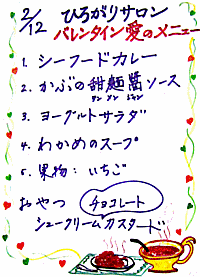 2/12 ひろがりサロン
バレンタイン愛のメニュー
1. シーフードカレー
2. かぶの甜麺醤ソース
テン メン ジャン
3. ヨーグルトサラダ
4. わかめのスープ
5. 果物：いちご
おやつ チョコレート
シュークリームカスタード